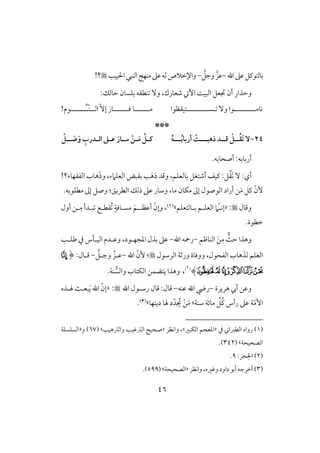 بالتوكل على الله -عزَّ وجلَّ- والإخلاص له على منهج النبي الحبيب ﷺ؟!
وحذارِ أن تجعل البيت الآتي شعارك، ولا تنطقه بلسان حالك:
نامـوا ولا تـستيقظوا مـا فـاز إلاَّ النُّـوَّم!
***
٢٤- لا تَقُـلْ قـد ذهبـتْ أربابُـهُ كـلُّ مَـنْ سـارَ عـلى الـدربِ وَصَـلْ
أربابه: أصحابه.
أي: لا تَقُلْ: كيف أشتغل بالعلم، وقد ذهب بقبض العلماء، وذهاب الفقهاء؟!
لأنّ كل مَن أراد الوصول إلى مكان ما، وسار على ذلك الطريق؛ وصل إلى مطلوبه.
وقال ﷺ: «إنـما العلـم بـالتعلم»(١)، وإنّ أعظـم مسـافةٍ تُقطـع تبـدأ مِـن أول
خطوة.
وهذا حثٌّ مِنَ الناظم -رحمه الله- على بذل المجهـود، وعـدم اليـأس في طلـب
العلم لذهاب الفحول، ووفاة ورثة الرسول ﷺ لأنّ الله -عـزَّ وجـلَّ- قـال: ﴿إِنَّا
نَحْنُ نَزَّلْنَا الذِّكْرَ وَإِنَّا لَهُ لَحَافِظُونَ﴾(٢)، وهذا يتضمن الكتاب والسُّنة.
وعن أبي هريرة -رضي الله عنه- قال: قال رسـول الله ﷺ: «إنّ الله يَبعـث لهـذه
الأمّة على رأس كُلِّ مائة سنة؛ مَنْ يُجدّد لها دينها»(٣).
(١) رواه الطبراني في «المعجم الكبير»، وانظر «صحيح الترغيب والترهيب» (٦٧) و«السلسلة
الصحيحة» (٣٤٢).
(٢) الحِجر: ٩.
(٣) أخرجه أبو داود وغيره، وانظر «الصحيحة» (٥٩٩).
٤٦